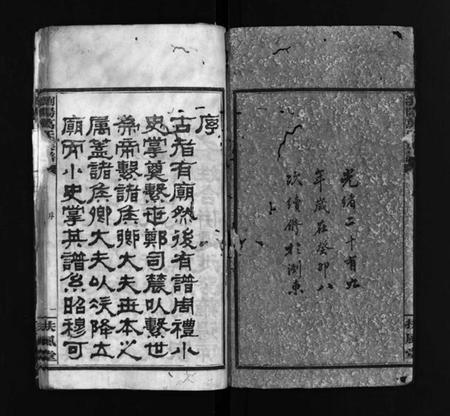 光緒二十有九
年歲在癸卯八
次續修於瀏東
序
古者有廟然後有譜周禮小
史掌奠繫世鄭司農以繫世
為帝繫諸侯卿大夫世本之
屬蓋諸侯卿大夫以次降立
廟而小史掌其譜系昭穆可
序
一
扶風堂